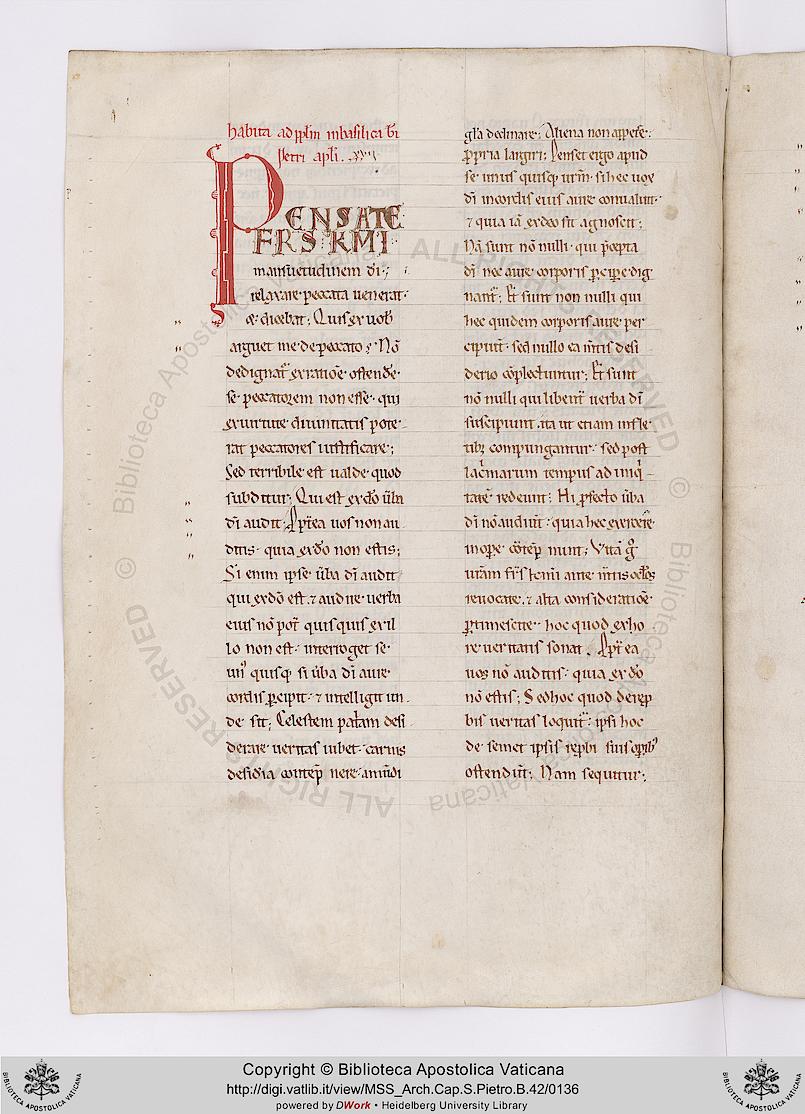 habita ad pplm in basilica bi
petri apli. xviii
PENSATE
FRS KMI
mansuetudinem di;
relaxare peccata venerat
& dicebat; Quis ex vob
arguet me de peccato? Nō
dedignat̃ ex ratiōe ostendẽ
se peccatorem non esse qui
ex virtute divinitatis pote
rat peccatores iustificare;
Sed terribile est valde quod
subditur; Qui est ex dō ũba
dī audit; Apṫea vos non au
ditis quia ex dō non estis;
Si enim ipse ũba dī audit
qui ex dō est, & audire verba
eius nō pot̃ quisquis ex il
lo non est, interroget se
un' quisq̨ si ũba dī aure
cordis p̱cipit, & intelligit un
de sit; Celestem pat̃am desi
derare veritas iubet, carnis
desidia contep̄nere, mūdi
gl̃a declinare; Aliena non appete
p̱pria largiri; Penset ergo apud
se unus quisq̨ ur̃m si hec vox
dī in cordis eius aure convaluit
& quia iā ex deo sit agnoscit;
Nā sunt nō nulli qui p̃cepta
dī nec aure corporis p̱cip̱e dig
nant̃; Et sunt non nulli qui
hec quidem corporis aure per
cipiunt̃ sed nullo ea mt̃is desi
derio cōplectuntur; Et sunt
nō nulli qui libent̃ verba dī
suscipiunt, ita ut etiam in fle
tib; compungantur, sed post
lac̃marum tempus ad iniq̇
tatē redeunt; Hi p̱fecto ũba
dī nō audiūt, quia hec exercere
in op̱e contēp nunt; Vitā g̊
ur̃am fr̃s kmi ante mt̃is oclōs
revocate, & alta consideratiōe
p̱timescite hoc quod ex ho
re veritatis sonat, Apṫea
vos nō auditis quia ex dō
nō estis; Sed hoc quod de rep̱
bis veritas loquit̃ ipsi hoc
de semet ipsis rep̱bi suis op̱ib'
ostendūt; Nam sequitur;
Copyright © Biblioteca Apostolica Vaticana
http://digi.vatlib.it/view/MSS_Arch.Cap.S.Pietro.B.42/0136
powered by DWork • Heidelberg University Library
BIBLIOTECA APOSTOLICA VATICANA
BIBLIOTECA APOSTOLICA VATICANA
© Biblioteca Apostolica Vaticana ALL RIGHTS RESERVED
© Biblioteca Apostolica Vaticana ALL RIGHTS RESERVED